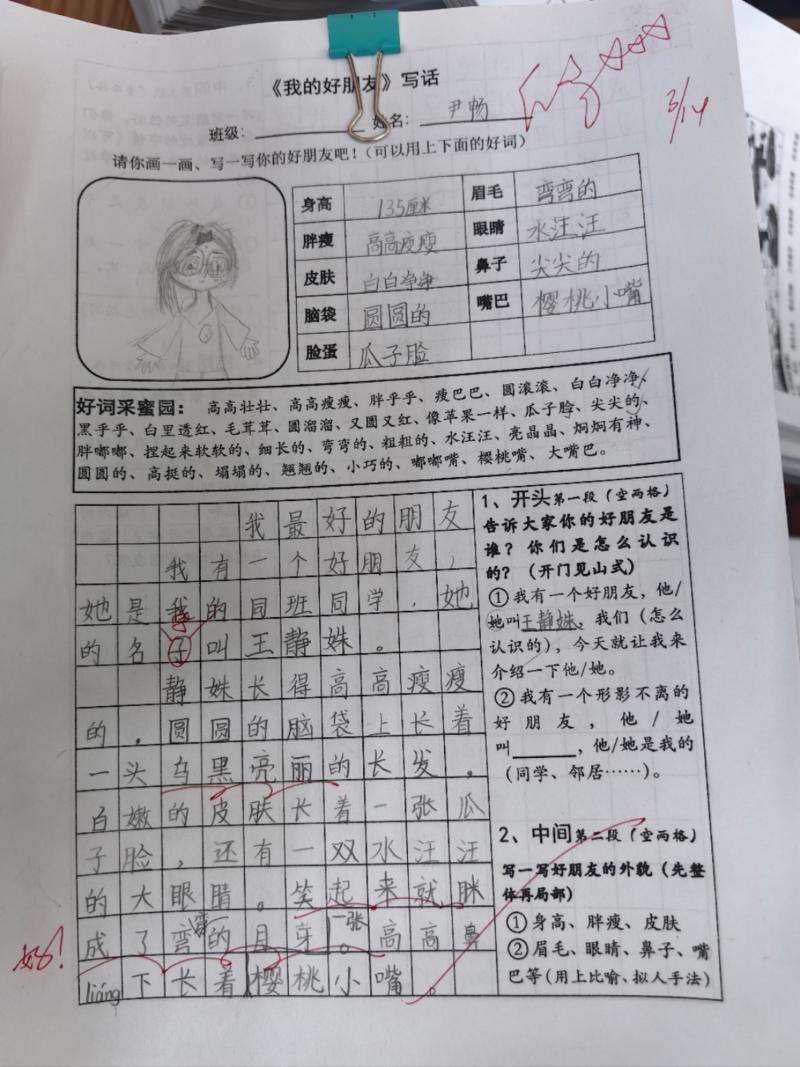 《我的好朋友》写话
3/14
班级： 姓名： 尹畅
请你画一画、写一写你的好朋友吧！（可以用上下面的好词）
身高 135厘米 眉毛 弯弯的
胖瘦 高高瘦瘦 眼睛 水汪汪
皮肤 白白净净 鼻子 尖尖的
脑袋 圆圆的 嘴巴 樱桃小嘴
脸蛋 瓜子脸
好词采蜜园： 高高壮壮、高高瘦瘦、胖乎乎、瘦巴巴、圆滚滚、白白净净、
黑乎乎、白里透红、毛茸茸、圆溜溜、又圆又红、像苹果一样、瓜子脸、尖尖的、
胖嘟嘟、捏起来软软的、细长的、弯弯的、粗粗的、水汪汪、亮晶晶、炯炯有神、
圆圆的、高挺的、塌塌的、翘翘的、小巧的、嘟嘟嘴、樱桃嘴、大嘴巴。
我最好的朋友
我有一个好朋友，
她是我的同班同学，她
字
的名子叫王静姝。
静姝长得高高瘦瘦
的，圆圆的脑袋上长着
一头乌黑亮丽的长发，
白嫩的皮肤长着一张瓜
子脸，还有一双水汪汪
的大眼睛。笑起来就眯
成了弯弯的月牙一张。高高鼻
liáng下长着樱桃小嘴。
好！
1、开头第一段（空两格）
告诉大家你的好朋友是
谁？你们是怎么认识
的？（开门见山式）
①我有一个好朋友，他/
她叫王静姝，我们（怎么
认识的），今天就让我来
介绍一下他/她。
②我有一个形影不离的
好朋友，他/她
叫______，他/她是我的
（同学、邻居……）。
2、中间第二段（空两格）
写一写好朋友的外貌（先整
体再局部）
①身高、胖瘦、皮肤
②眉毛、眼睛、鼻子、嘴
巴等（用上比喻、拟人手法）